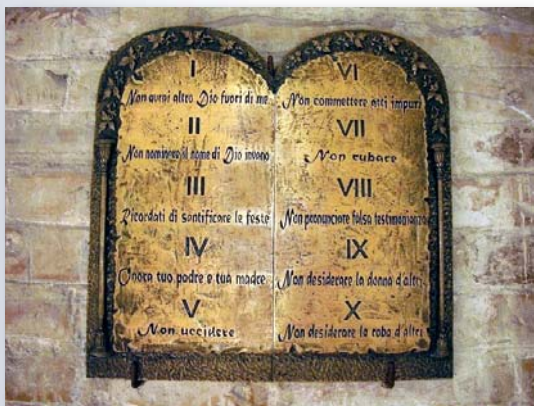 I
Non avrai altro Dio fuori di me
II
Non nominare il nome di Dio invano
III
Ricordati di santificare le feste
IV
Onora tuo padre e tua madre
V
Non uccidere
VI
Non commettere atti impuri
VII
Non rubare
VIII
Non pronunciare falsa testimonianza
IX
Non desiderare la donna d'altri
X
Non desiderare la roba d'altri